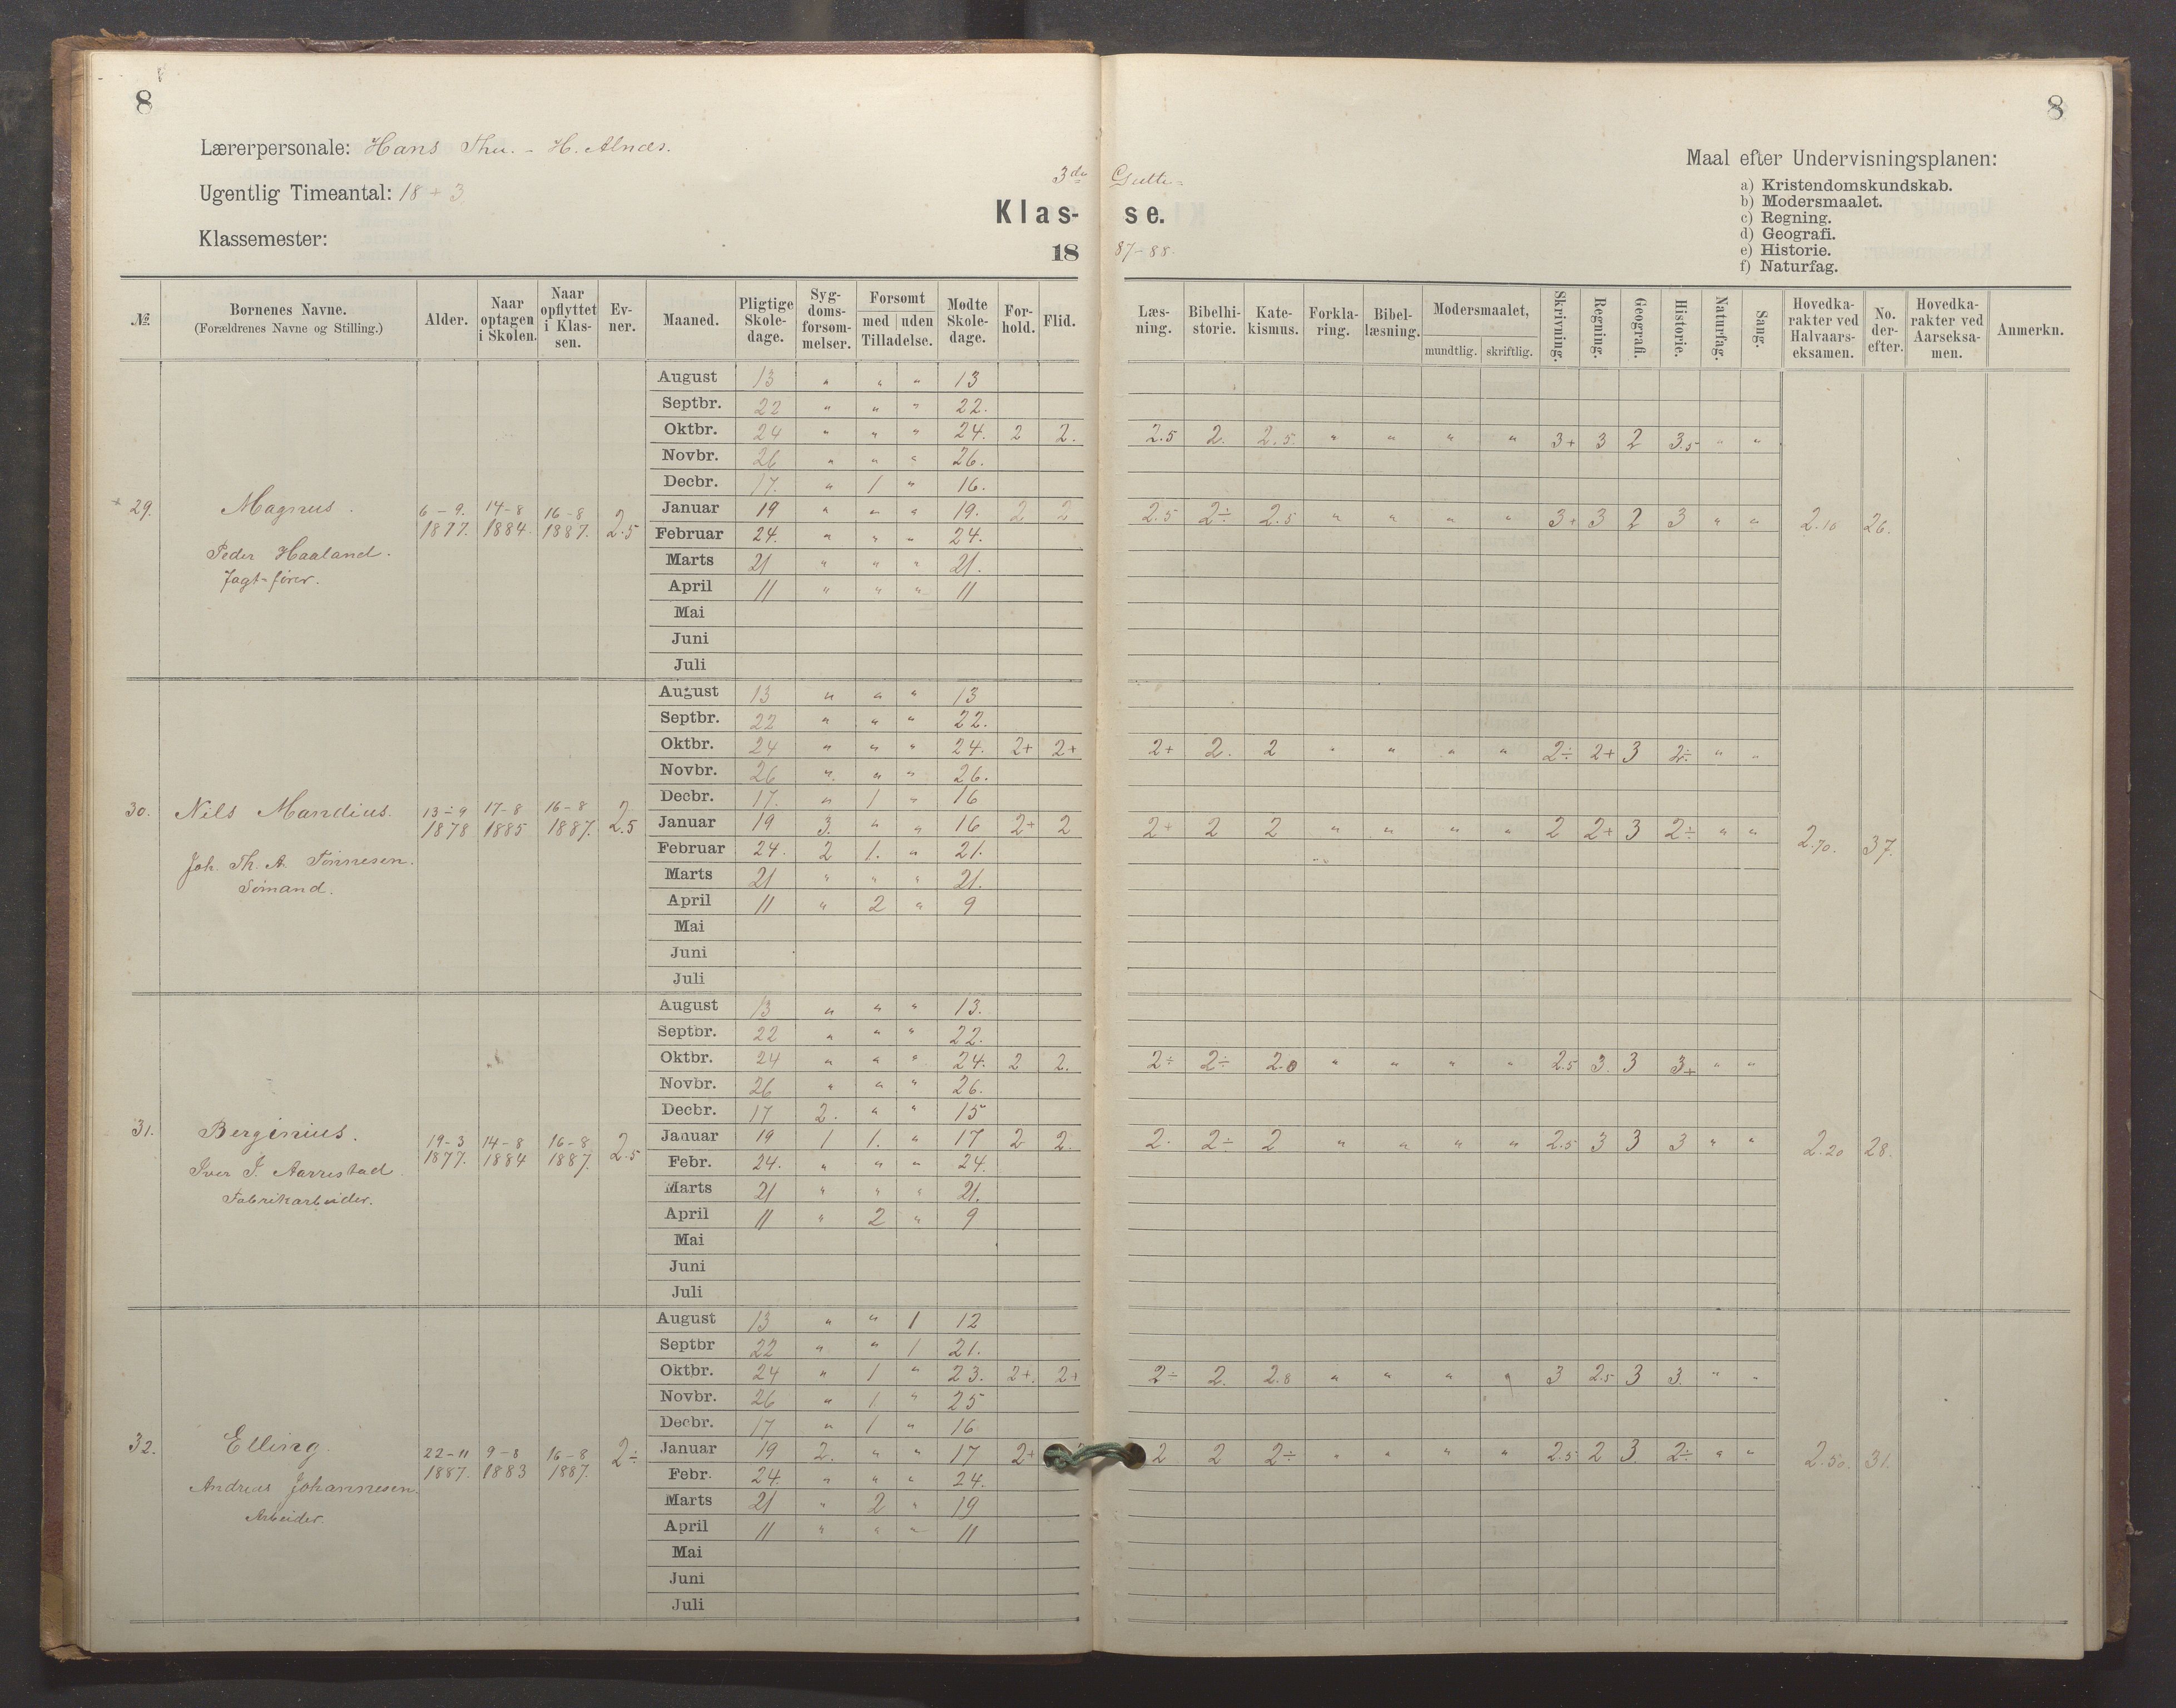 8
8
Lærerpersonale: Hans Thu. - H. Alnæs.
Ugentlig Timeantal: 18 + 3
Klassemester:
3die Gutte=
Klas- se.
18 87-88.
Maal efter Undervisningsplanen:
a) Kristendomskundskab.
b) Modersmaalet.
c) Regning.
d) Geografi.
e) Historie.
f) Naturfag.
№ Børnenes Navne. (Forældrenes Navne og Stilling.) Alder. Naar optagen i Skolen. Naar opflyttet i Klassen. Evner. Maaned. Pligtige Skoledage. Sygdomsforsømmelser. Forsømt med uden Tilladelse. Mødte Skoledage. Forhold. Flid. Læsning. Bibelhistorie. Katekismus. Forklaring. Bibellæsning. Modersmaalet, mundtlig. skriftlig. Skrivning. Regning. Geografi. Historie. Naturfag. Sang. Hovedkarakter ved Halvaarseksamen. No. derefter. Hovedkarakter ved Aarseksamen. Anmerkn.
29. Magnus.
Peder Haaland.
Jagt-fører.
6-9. 1877. 14-8 1884. 16-8 1887. 2.5
August 13 " " " 13
Septbr. 22 " " " 22.
Oktbr. 24 " " " 24. 2 2. 2.5 2. 2.5. " " " " 3+ 3 2 3.5 " "
Novbr. 26 " " " 26.
Decbr. 17. " 1 " 16.
Januar 19 " " " 19. 2 2 2.5 2÷ 2.5 " " " " 3+ 3 2 3 " " 2.10 26.
Februar 24. " " " 24.
Marts 21 " " " 21.
April 11 " " " 11
Mai
Juni
Juli
30. Nils Mandius.
Joh. Th. A. Tönnesen.
Sömand.
13-9 1878 17-8 1885 16-8 1887. 2.5
August 13 " " " 13
Septbr. 22 " " " 22.
Oktbr. 24 " " " 24. 2+ 2+ 2+ 2. 2 " " " " 2÷ 2+ 3 2÷ " "
Novbr. 26 " " " 26.
Decbr. 17. " 1 " 16
Januar 19 3. " " 16 2+ 2 2+ 2 2 " " " " 2 2+ 3 2÷ " " 2.70. 37.
Februar 24. 2 1. " 21.
Marts 21 " " " 21.
April 11 " 2 " 9
Mai
Juni
Juli
31. Berginius.
Iver J. Aarrestad.
Fabrikarbeider.
19-3 1877. 14-8 1884 16-8 1887. 2.5
August 13 " " " 13.
Septbr. 22 " " " 22.
Oktbr. 24 " " " 24. 2 2. 2÷ 2÷ 2.0 " " " " 2.5 3. 3 3+ " "
Novbr. 26 " " " 26.
Decbr. 17 2. " " 15
Januar 19 1 1. " 17 2 2. 2. 2÷ 2 " " " " 2.5 3 3 3 " " 2.20 28.
Febr. 24. " " " 24.
Marts 21 " " " 21.
April 11 " 2 " 9
Mai
Juni
Juli
32. Elling.
Andreas Johannesen.
Arbeider.
22-11 1887. 9-8 1883 16-8 1887. 2÷
August 13 " " 1 12
Septbr 22 " " 1 21.
Oktbr. 24 " 1 " 23. 2+. 2+ 2÷ 2. 2.8 " " " " 3 2.5 3 3. " "
Novbr. 26 " 1. " 25
Decbr. 17 " 1 " 16
Januar 19 2. " " 17 2+ 2 2 2÷ " " " " 2.5 2 3. 2÷ " " 2.50. 31.
Febr. 24. " " " 24.
Marts 21 " 2 " 19
April 11 " " " 11
Mai
Juni
Juli